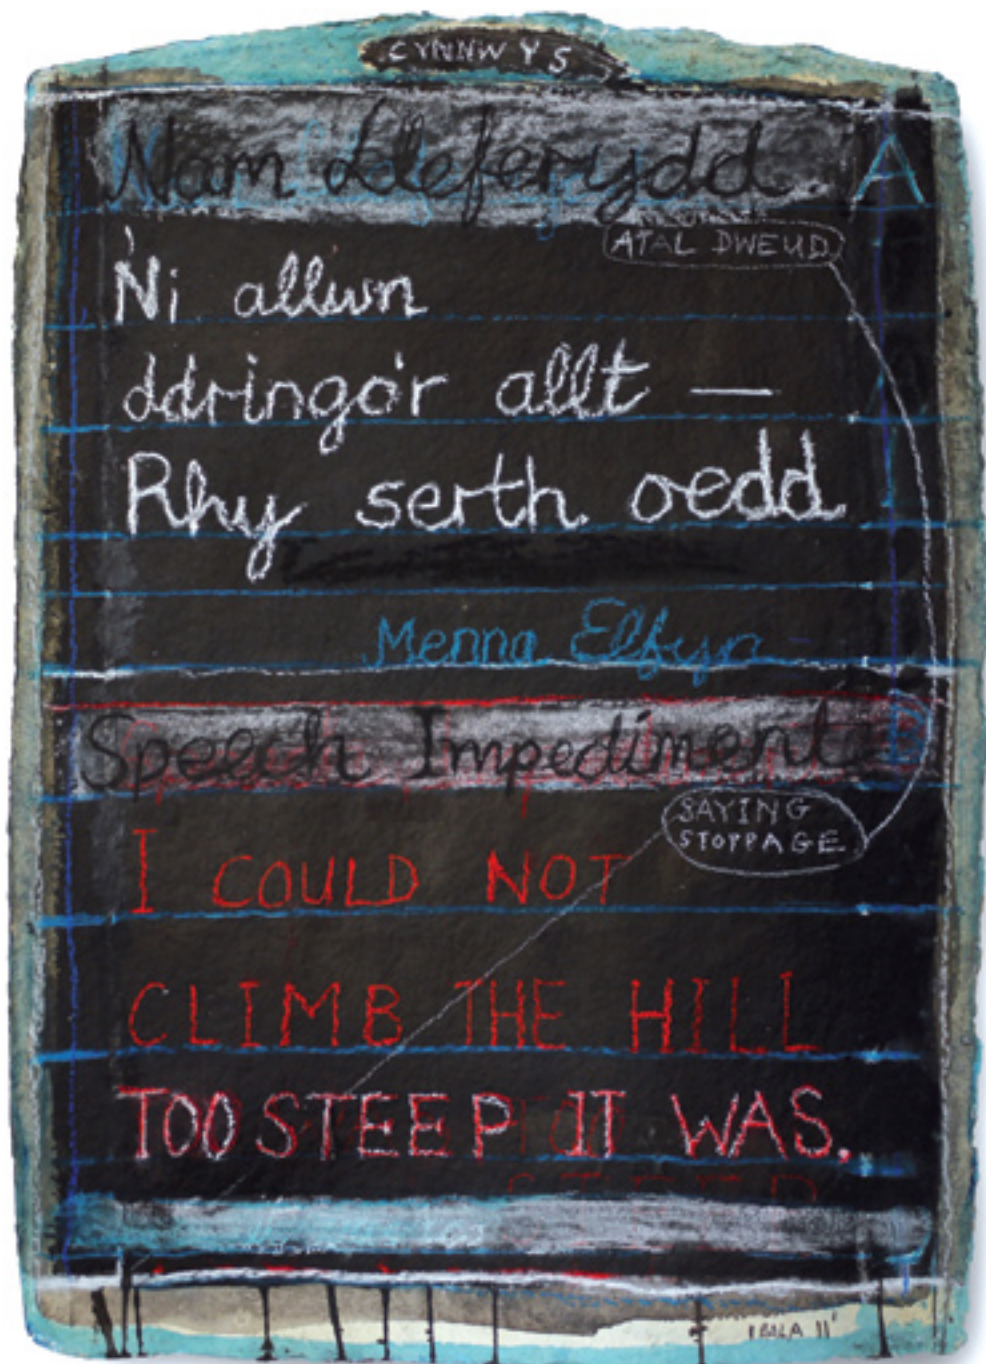 CYNNWYS
Nam Lleferydd. A
ATAL DWEUD
Ni allwn
ddringo'r allt —
Rhy serth oedd
Menna Elfyn
Speech Impediment B
SAYING
STOPPAGE
I COULD NOT
CLIMB THE HILL
TOO STEEP IT WAS.